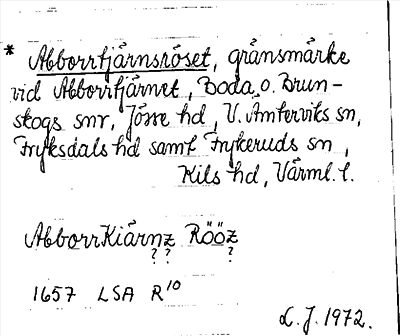 * Abborrtjärnsröset, gränsmärke
vid Abborrtjärnet, Boda o. Brun-
skogs snr, Jösse hd, V. Ämterviks sn,
Fryksdals hd samt Frykeruds sn,
Kils hd, Värml. l.
AbborrKiärnz Röðz
? ? ?
1657 LSA R10
L.J. 1972.